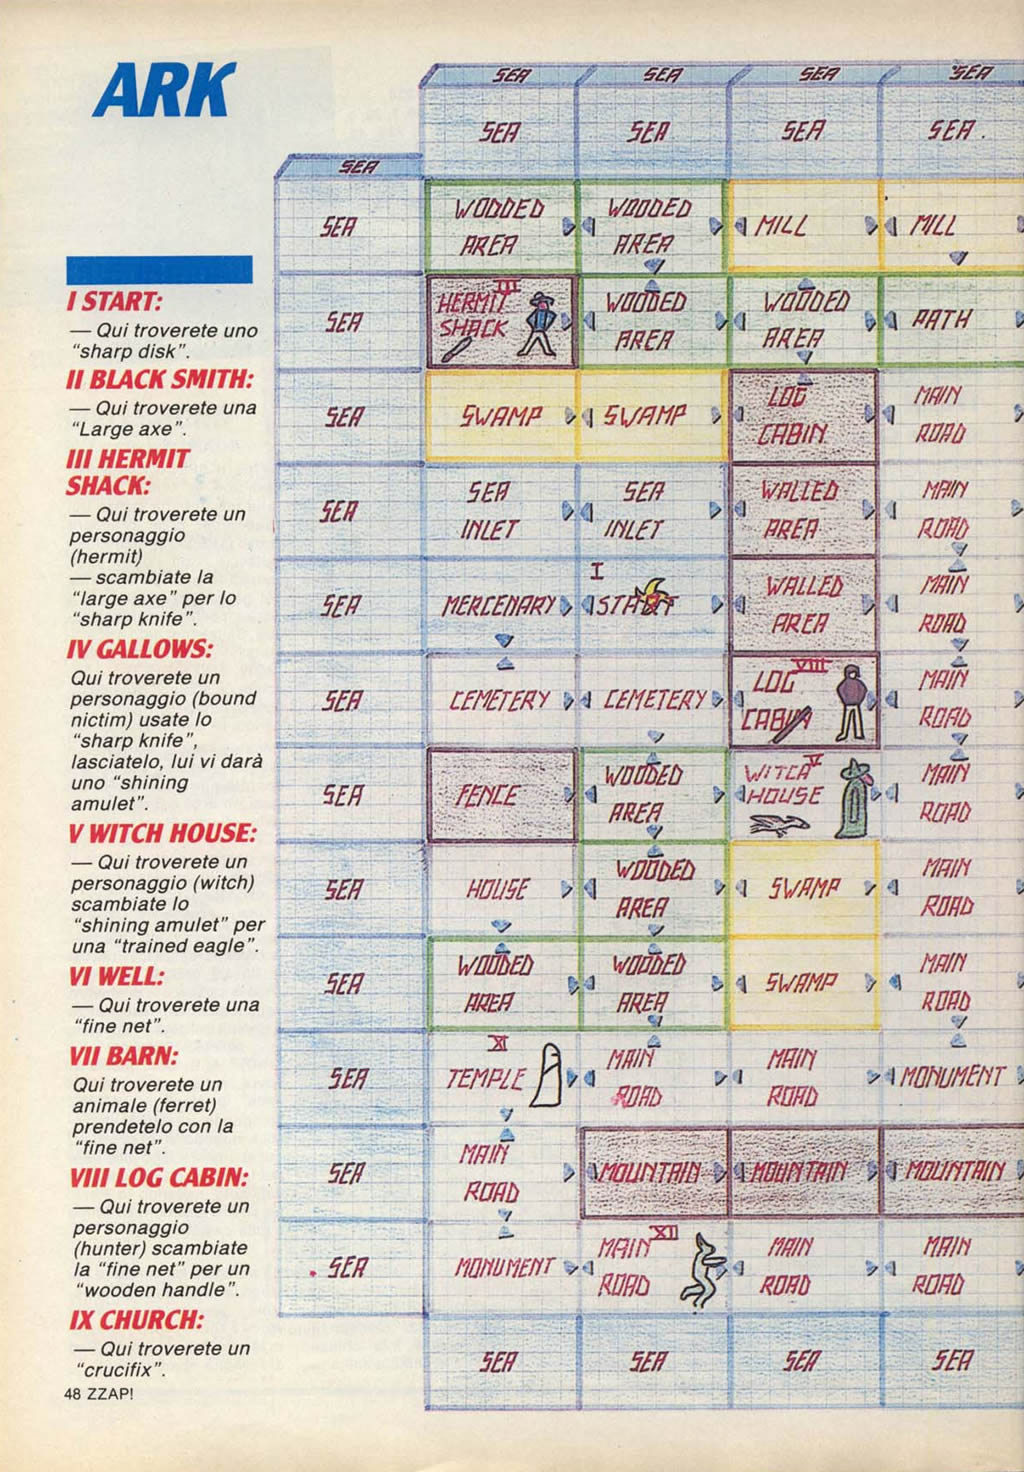 ARK
I START:
— Qui troverete uno
“sharp disk”.
II BLACK SMITH:
— Qui troverete una
“Large axe”.
III HERMIT
SHACK:
— Qui troverete un
personaggio
(hermit)
— scambiate la
“large axe” per lo
“sharp knife”.
IV GALLOWS:
Qui troverete un
personaggio (bound
nictim) usate lo
“sharp knife”,
lasciatelo, lui vi darà
uno “shining
amulet”.
V WITCH HOUSE:
— Qui troverete un
personaggio (witch)
scambiate lo
“shining amulet” per
una “trained eagle”.
VI WELL:
— Qui troverete una
“fine net”.
VII BARN:
Qui troverete un
animale (ferret)
prendetelo con la
“fine net”.
VIII LOG CABIN:
— Qui troverete un
personaggio
(hunter) scambiate
la “fine net” per un
“wooden handle”.
IX CHURCH:
— Qui troverete un
“crucifix”.
48 ZZAP!
SEA SEA SEA SEA
SEA SEA SEA SEA
SEA
SEA
WOODED
AREA
WOODED
AREA
MILL
MILL
SEA
III
HERMIT
SHACK
WOODED
AREA
WOODED
AREA
PATH
SEA
SWAMP
SWAMP
LOG
CABIN
MAIN
ROAD
SEA
SEA
INLET
SEA
INLET
WALLED
AREA
MAIN
ROAD
SEA
MERCENARY
I
START
WALLED
AREA
MAIN
ROAD
SEA
CEMETERY
CEMETERY
VIII
LOG
CABIN
MAIN
ROAD
SEA
FENCE
WOODED
AREA
V
WITCH
HOUSE
MAIN
ROAD
SEA
HOUSE
WOODED
AREA
SWAMP
MAIN
ROAD
SEA
WOODED
AREA
WOODED
AREA
SWAMP
MAIN
ROAD
SEA
XI
TEMPLE
MAIN
ROAD
MAIN
ROAD
MONUMENT
SEA
MAIN
ROAD
MOUNTAIN
MOUNTAIN
MOUNTAIN
SEA
MONUMENT
XII
MAIN
ROAD
MAIN
ROAD
MAIN
ROAD
SEA SEA SEA SEA